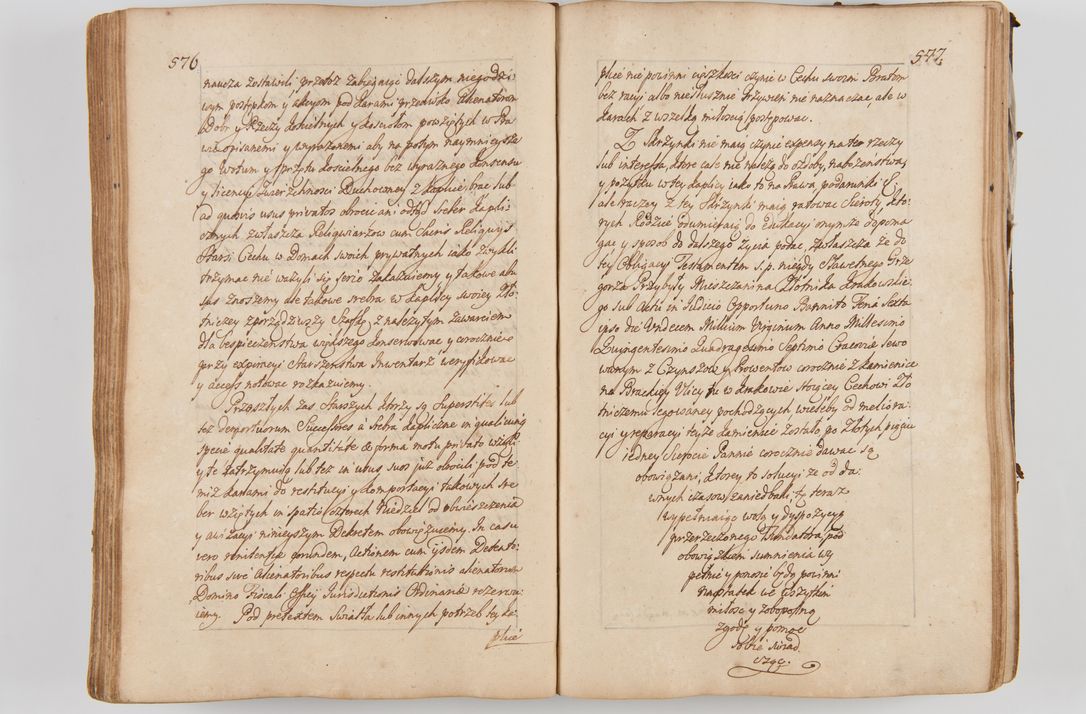 576
naucza zostawili przeto zabiegaiąc dalszym niegodzi-
wym postępkom y akcyom pod karami przeciwko Alienatorom
Dobr y Rzeczy kościelnych y kościołom poswięconych w Pra
wie opisanemi y wyrażonemi aby na potym naymnieysze
go Wotum y sprzętu kościelnego bez wyraźnego konsensu
y licencyi Zwierzchności Duchowney z kaplice brac lub
ad quosvis usus privatos obrocic ani odtąd sreber kapli
cznych zwłaszcza Religwiarzow cum sacris Reliquijs
Starsi Cechu w Domach swoich prywatnych iako zwykli
trzymac nie ważyli się serio zakazuiemy y takowe abu
sus znosiemy ale takowe srebra w kaplicy swoiey Zło
tniczey zporządziwszy Szafę z należytym zawarciem
dla bespieczeństwa większego konserwowac y corocznie
przy expiracyi Starszenstwa Inwentarz weryfikowac
y access notowac rozkazuiemy.
Przeszłych zas Starszych ktorzy są Superstites lub
też demortuorum Successores a srebra kapliczne in qualicunq
specie qualitate quantitate et forma motu privato wzięli
y te zatrzymuią lub też in usus suos już obrocili pod te
miż karami do restitucyi y komportacyi takowych sre
ber wziętych in spatio czterech Niedziel od obwieszczenia
y awizacyi ninieyszym Dekretem obowiązuiemy. In casu
vero renitentiæ eorundem, Actionem cum ijsdem Detento
ribus sive Alienatoribus respectu restitutionis alienatorum
Domino Fiscali Officij Jurisdictionis Ordinariæ rezerwu
iemy. Pod pretextem Swiatła lub innych potrzeb tey ka-
plice
577.
plice nie powinni ciężkości czynic w Cechu swoim Bratom
bez racyi albo niesłusznie Grzywien nie naznaczac, ale w
karach z wszelką miłoscią postępowac.
Z Skrzynki nie maią czynic expensy na te rzeczy
lub interessa, ktore cale nie należą do ozdoby, nabożenstwa,
y pożytku w tey kaplicy iako to na Prawa, podarunki &c
ale raczey z tey Skrzynki maią ratowac Sieroty kto-
rych Rodzice odumieraią do Edukacyi onymże dopoma
gac y sposob do dalszego życia podac, zwłaszcza że do
tey Obligacyi Testamentem s. p. niegdy Sławetnego Grze
gorza Przybyły Mieszczanina Złotnika krakowskie-
go sub Actu in Judicio Opportuno Bannito Feria Sexta
ipso die Undecem Millium Virginum Anno Millesimo
Quingentesimo Quadragesimo Septimo Cracoviæ sewo
wanym z Czynszow y Prowentow corocznie z kamienice
na Brackiey Ulicy tu w krakowie stoiącey Cechowi Zło
tniczemu legowaney pochodzących wieleby od meliora-
cyi y reparacyi teyże kamienice zostało po Złotych pięciu
iedney Sierocie Pannie corocznie dawac są
obowiązani, ktorey to solucyi że od da-
wnych czasow zaniedbali, y teraz
wypełniaiąc wolą y dyspozycyą
przerzeczonego Fundatora, pod
obowiązkiem sumnienia wy
pełnic y ponosic będą powinni
naostatek we wszystkim
miłosc y zobopolną
zgodę y pomoc
sobie swiad
cząc.